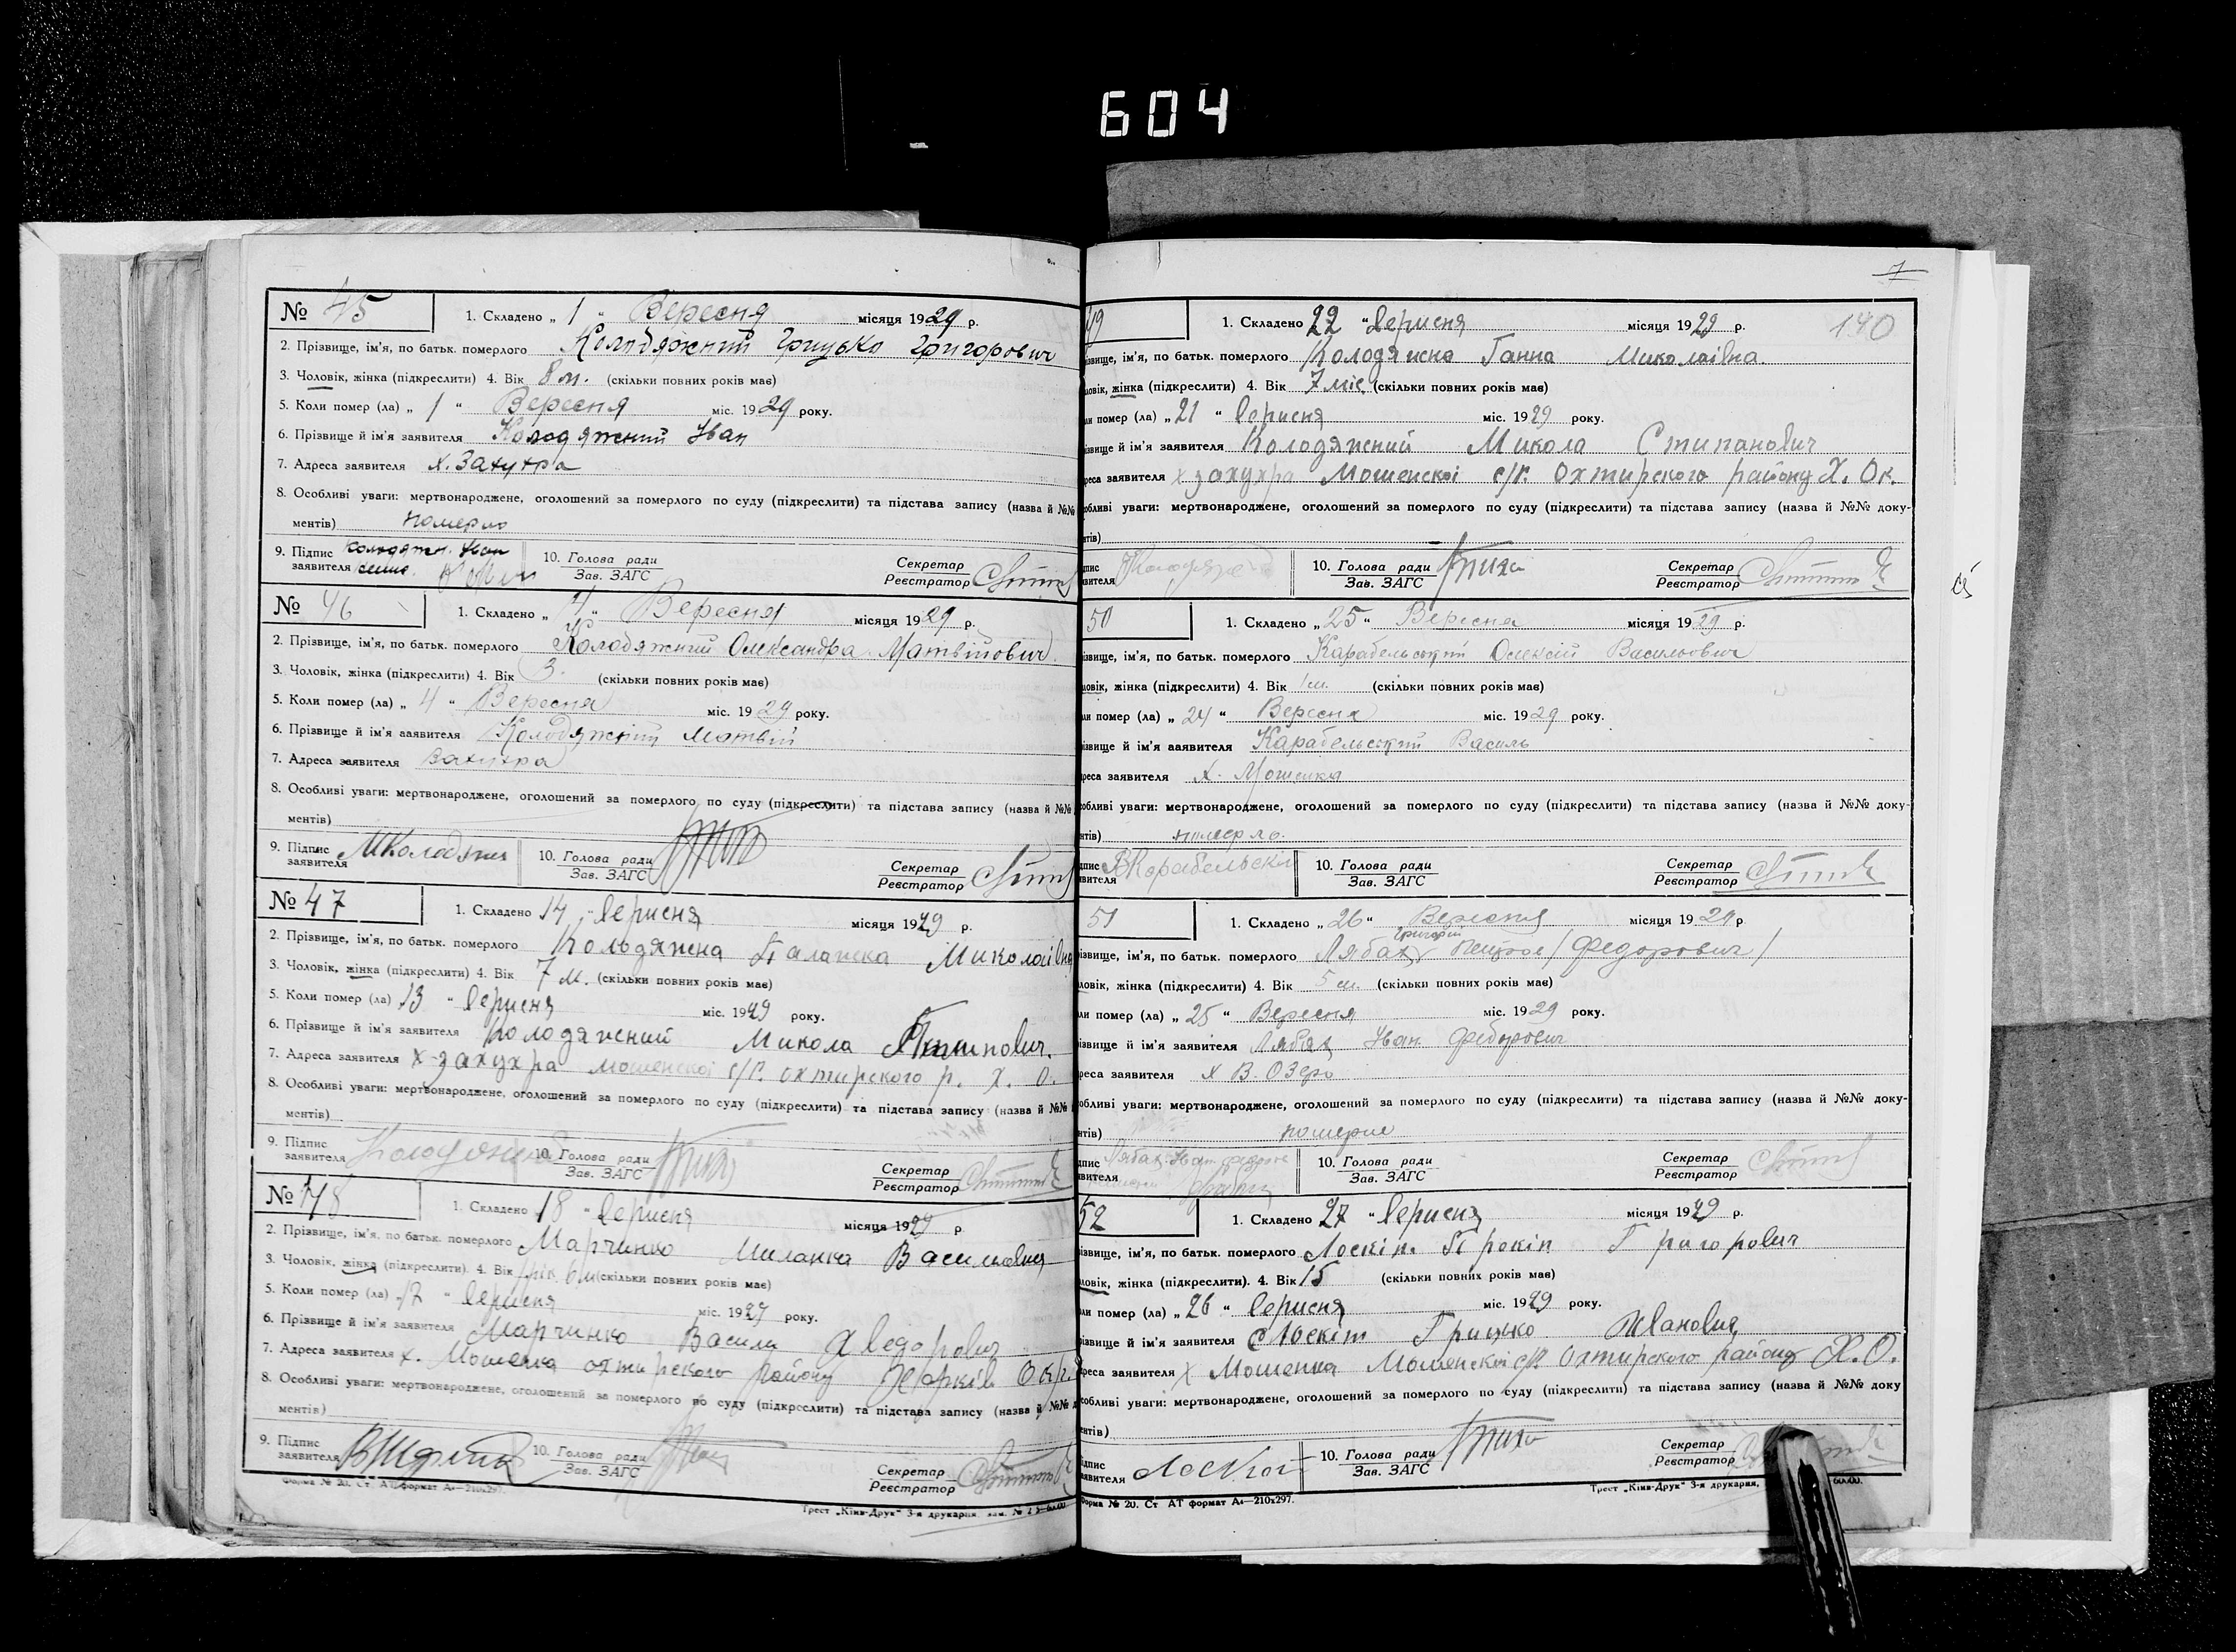 604
№ 45 1. Складено „ 1 " Вересня місяця 1929 р.
2. Прізвище, ім'я, по батьк. померлого Колодяжний Грицько Григорович
3. Чоловік, жінка (підкреслити) 4. Вік 8 м. (скільки повних років має)
5. Коли помер (ла) „ 1 " Вересня міс. 1929 року.
6. Прізвище й ім'я заявителя Колодяжний Иван
7. Адреса заявителя х. Захухра
8. Особливі уваги: мертвонароджене, оголошений за померлого по суду (підкреслити) та підстава запису (назва й №№
ментів) померло
9. Підпис заявителя Колодяжн. Иван 10. Голова ради Зав. ЗАГС Секретар Реєстратор
№ 46 1. Складено „ 4 " Вересня місяця 1929 р.
2. Прізвище, ім'я, по батьк. померлого Колодяжний Олександра Матвійович
3. Чоловік, жінка (підкреслити) 4. Вік 3. (скільки повних років має)
5. Коли помер (ла) „ 4 " Вересня міс. 1929 року.
6. Прізвище й ім'я заявителя Колодяжний Матвій
7. Адреса заявителя Захухра
8. Особливі уваги: мертвонароджене, оголошений за померлого по суду (підкреслити) та підстава запису (назва й №№
ментів)
9. Підпис заявителя МКолодяжн 10. Голова ради Зав. ЗАГС Секретар Реєстратор
№ 47 1. Складено 14 " вересня місяця 1929 р.
2. Прізвище, ім'я, по батьк. померлого Колодяжна Палажка Миколаівна
3. Чоловік, жінка (підкреслити) 4. Вік 7 м. (скільки повних років має)
5. Коли помер (ла) 13 " верисня міс. 1929 року.
6. Прізвище й ім'я заявителя Колодяжний Микола
7. Адреса заявителя х захухра мошенскоі с/р. охтирского р. Х. О.
8. Особливі уваги: мертвонароджене, оголошений за померлого по суду (підкреслити) та підстава запису (назва й №№
ментів)
9. Підпис заявителя 10. Голова ради Зав. ЗАГС Секретар Реєстратор
№ 48 1. Складено 18 " верисня місяця 1929 р.
2. Прізвище, ім'я, по батьк. померлого Марчинко Миланка Василівна
3. Чоловік, жінка (підкреслити). 4. Вік 1 рік 6 м (скільки повних років має)
5. Коли помер (ла) „ 17 " верисня міс. 1929 року.
6. Прізвище й ім'я заявителя Марчинко Василь Хведорович
7. Адреса заявителя х. Мошенка охтирского району Харків Окр.
8. Особливі уваги: мертвонароджене, оголошений за померлого по суду (підкреслити) та підстава запису (назва й №№
ментів)
9. Підпис заявителя 10. Голова ради Зав. ЗАГС Секретар Реєстратор
Форма № 20. Ст. АТ формат А₄—210x297.
Трест „Київ-Друк" 3-я друкарня
140
49 1. Складено 22 " верисня місяця 1929 р.
ізвище, ім'я, по батьк. померлого Колодяжна Ганна Миколаівна
ловік, жінка (підкреслити) 4. Вік 7 міс (скільки повних років має)
ли помер (ла) „ 21 " верисня міс. 1929 року.
ізвище й ім'я заявителя Колодяжний Микола Стипанович
реса заявителя х захухра Мошенскоі с/р. Охтирского району Х. Ок.
обливі уваги: мертвонароджене, оголошений за померлого по суду (підкреслити) та підстава запису (назва й №№ доку-
нтів)
дпис явителя 10. Голова ради Зав. ЗАГС Секретар Реєстратор
50 1. Складено „ 25 " Вересня місяця 1929 р.
ізвище, ім'я, по батьк. померлого Карабельський Олексій Васильович
ловік, жінка (підкреслити) 4. Вік 1 м. (скільки повних років має)
ли помер (ла) „ 24 " Вересня міс. 1929 року.
ізвище й ім'я заявителя Карабельський Василь
реса заявителя х. Мошенка
обливі уваги: мертвонароджене, оголошений за померлого по суду (підкреслити) та підстава запису (назва й №№ доку-
нтів) померло.
дпис явителя ВКарабельскій 10. Голова ради Зав. ЗАГС Секретар Реєстратор
51 1. Складено „ 26 " Вересня місяця 1929 р.
Григорій
ізвище, ім'я, по батьк. померлого Лябах / Федорович /
ловік, жінка (підкреслити) 4. Вік 5 м. (скільки повних років має)
ли помер (ла) „ 25 " Вересня міс. 1929 року.
ізвище й ім'я заявителя Лябах Иван Федорович
реса заявителя х В. Озеро
обливі уваги: мертвонароджене, оголошений за померлого по суду (підкреслити) та підстава запису (назва й №№ доку-
нтів) померло
дпис явителя Лябах Иван 10. Голова ради Зав. ЗАГС Секретар Реєстратор
52 1. Складено 27 " верисня місяця 1929 р.
ізвище, ім'я, по батьк. померлого Лоскін. Григорович
ловік, жінка (підкреслити). 4. Вік 15 (скільки повних років має)
ли помер (ла) „ 26 " верисня міс. 1929 року.
ізвище й ім'я заявителя Грицько
реса заявителя х Мошенка Мошенскоі с/р Охтирского району Х. О.
собливі уваги: мертвонароджене, оголошений за померлого по суду (підкреслити) та підстава запису (назва й №№ доку
ентів)
ідпис аявителя 10. Голова ради Зав. ЗАГС Секретар Реєстратор
Форма № 20. Ст АТ формат А₄—210x297.
Трест „Київ-Друк" 3-я друкарня, 60000.